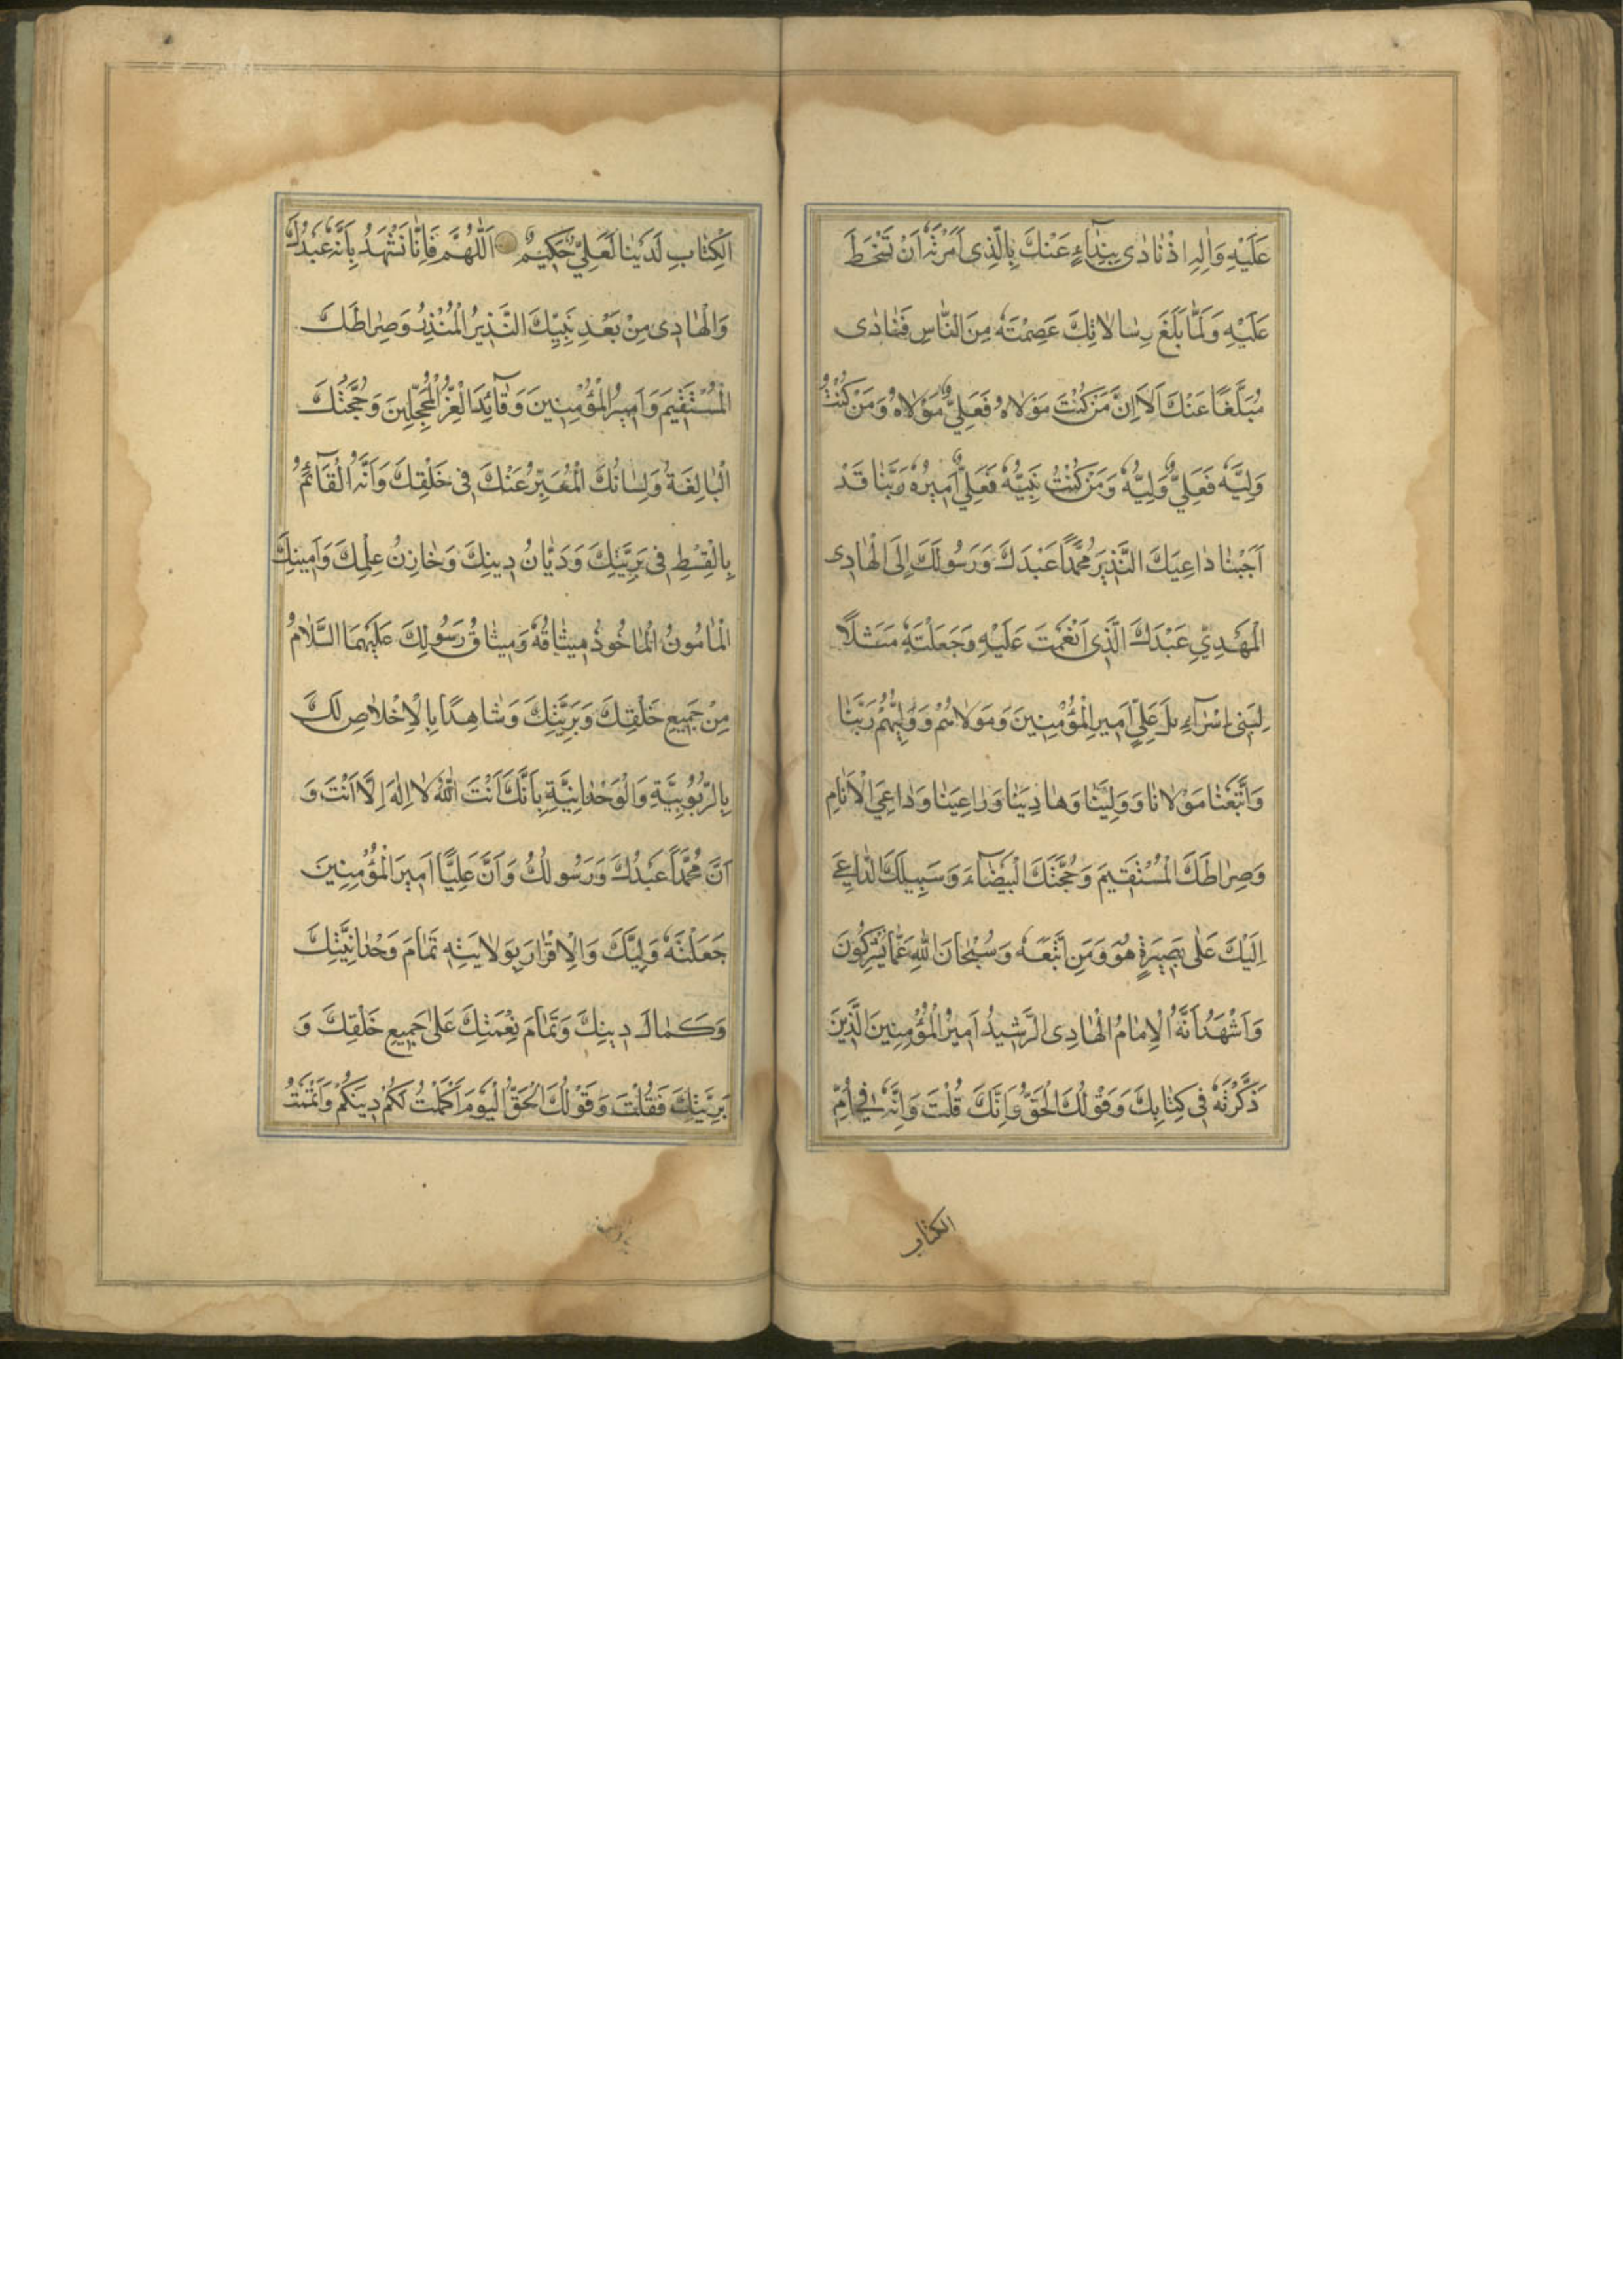 عَلَيْهِ وَاٰلِهِ اِذْ نٰادٰى بِنِدٰآءٍ عَنْكَ بِالَّذِى اَمَرْتَهُ اَنْ تَسْخَطَ
عَلَيْهِ وَلَمّٰا بَلَّغَ رِسٰالاٰتِكَ عَصَمْتَهُ مِنَ النّٰاسِ فَنٰادٰى
مُبَلِّغًا عَنْكَ اَلاٰ اِنَّ مَنْ كُنْتُ مَوْلاٰهُ فَعَلِيٌّ مَوْلاٰهُ وَمَنْ كُنْتُ
وَلِيَّهُ فَعَلِيٌّ وَلِيُّهُ وَمَنْ كُنْتُ نَبِيَّهُ فَعَلِيٌّ اَمِيرُهُ رَبَّنٰا قَدْ
اَجَبْنٰا دٰاعِيَكَ النَّذِيرَ مُحَمَّدًا عَبْدَكَ وَرَسُولَكَ اِلَى الْهٰادِى
الْمَهْدِيِّ عَبْدَكَ الَّذِى اَنْعَمْتَ عَلَيْهِ وَجَعَلْتَهُ مَثَلًا
لِبَنِى اِسْرٰآءِيلَ عَلِيٍّ اَمِيرِ الْمُؤْمِنِينَ وَمَوْلاٰهُمْ وَوَلِيِّهُمْ رَبَّنٰا
وَاتَّبَعْنٰا مَوْلاٰنٰا وَوَلِيَّنٰا وَهٰادِيَنٰا وَرٰاعِيَنٰا وَدٰاعِيَ الْاَنٰامِ
وَصِرٰاطَكَ الْمُسْتَقِيمَ وَحُجَّتَكَ الْبَيْضٰآءَ وَسَبِيلَكَ الدّٰاعِيَ
اِلَيْكَ عَلٰى بَصِيرَةٍ هُوَ وَمَنِ اتَّبَعَهُ وَسُبْحٰانَ اللّٰهِ عَمّٰا يُشْرِكُونَ
وَاَشْهَدُ اَنَّهُ الْاِمٰامُ الْهٰادِى الرَّشِيدُ اَمِيرُ الْمُؤْمِنِينَ الَّذِينَ
ذَكَرْتَهُ فِى كِتٰابِكَ وَقَوْلُكَ الْحَقُّ وَاِنَّكَ قُلْتَ وَاِنَّهُ فِى اُمِّ
الكتاب
اَلْكِتٰابِ لَدَيْنٰا لَعَلِيٌّ حَكِيمٌ اَللّٰهُمَّ فَاِنّٰا نَشْهَدُ بِاَنَّهُ عَبْدُكَ
وَالْهٰادِى مِنْ بَعْدِ نَبِيِّكَ النَّذِيرُ الْمُنْذِرُ وَصِرٰاطُكَ
الْمُسْتَقِيمَ وَاَمِيرُ الْمُؤْمِنِينَ وَقٰآئِدَ الْغُرِّ الْمُحَجَّلِينَ وَحُجَّتُكَ
الْبٰالِغَةُ وَلِسٰانُكَ الْمُعَبِّرُ عَنْكَ فِى خَلْقِكَ وَاَنَّهُ الْقٰآئِمُ
بِالْقِسْطِ فِى بَرِيَّتِكَ وَدَيّٰانُ دِينِكَ وَخٰازِنُ عِلْمِكَ وَاَمِينِكَ
الْمَاْمُونُ الْمَاْخُوذُ مِيثٰاقُهُ وَمِيثٰاقُ رَسُولِكَ عَلَيْهِمَا السَّلاٰمُ
مِنْ جَمِيعِ خَلْقِكَ وَبَرِيَّتِكَ وَشٰاهِدًا بِالْاِخْلاٰصِ لَكَ
بِالرُّبُوبِيَّةِ وَالْوَحْدٰانِيَّةِ بِاَنَّكَ اَنْتَ اللّٰهُ لاٰ اِلٰهَ اِلَّا اَنْتَ وَ
اَنَّ مُحَمَّدًا عَبْدُكَ وَرَسُولُكَ وَاَنَّ عَلِيًّا اَمِيرَ الْمُؤْمِنِينَ
جَعَلْتَهُ وَلِيَّكَ وَالْاِقْرٰارَ بِوَلاٰيَتِهِ تَمٰامَ وَحْدٰانِيَّتِكَ
وَكَمٰالَ دِينِكَ وَتَمٰامَ نِعْمَتِكَ عَلٰى جَمِيعِ خَلْقِكَ وَ
بَرِيَّتِكَ فَقُلْتَ وَقَوْلُكَ الْحَقُّ الْيَوْمَ اَكْمَلْتُ لَكُمْ دِينَكُمْ وَاَتْمَمْتُ